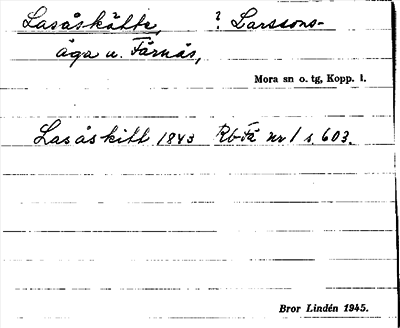 Lasåskätte, ? Larssons-
äga u. Färnäs,
Mora sn o. tg, Kopp. l.
Lasåskitt 1843 Rb Fä nr 1 s. 603.
Bror Lindén 1945.